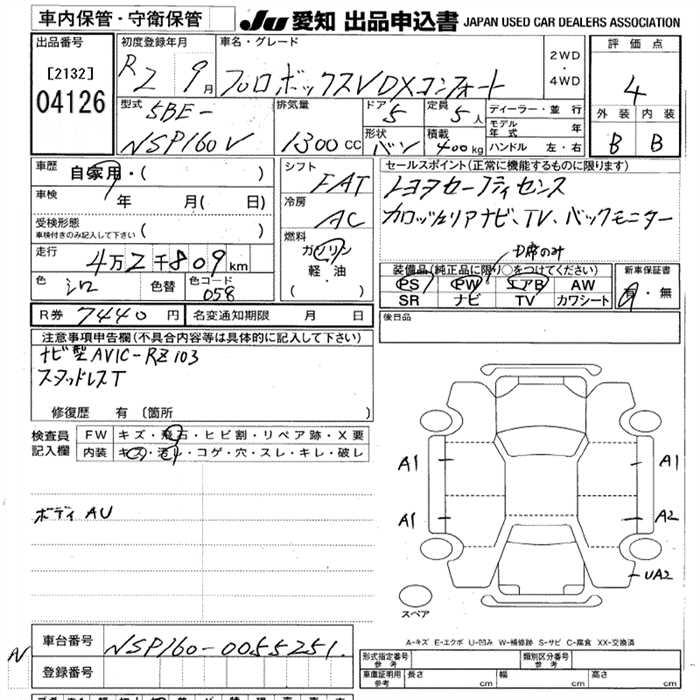 車内保管・守衛保管
JU 愛知 出品申込書 JAPAN USED CAR DEALERS ASSOCIATION
出品番号 初度登録年月 車名・グレード 評価点
[2132] R2 9月 プロボックスV DXコンフォート 2WD・4WD 4
04126 型式 排気量 ドア 定員 ディーラー・並行 外装 内装
5BE-NSP160V 1300CC 5 5人 モデル年式 年 B B
形状 バン 積載 400kg ハンドル 左・右
車歴 自家用・( ) シフト FAT セールスポイント(正常に機能するものに限ります)
車検 年 月( 日) 冷房 AC トヨタセーフティセンス
カロッツェリアナビ、TV、バックモニター
受検形態 車検付きのみ記入して下さい ( ) 燃料 ガソリン 軽油 ・( )
走行 4万2千809km
色 シロ 色替 色コード 058
装備品(純正品に限り○をつけてください) 新車保証書
PS PW エアB AW 有・無
SR ナビ TV カワシート
R券 7440円 名変通知期限 月 日 後日品
注意事項申告欄(不具合内容等は具体的に記入して下さい)
ナビ型AVIC-RZ103
スタッドレスT
修復歴 有 (箇所 )
検査員記入欄 FW キズ・飛石・ヒビ割・リペア跡・X要
内装 キズ・汚レ・コゲ・穴・スレ・キレ・破レ
A1 A1
ボディ AU
A1 A2
UA2
スペア
A-キズ E-エクボ U-凹み W-補修跡 S-サビ C-腐食 XX-交換済
N 車台番号 NSP160-0055251.
登録番号
形式指定番号 参考 類別区分番号 参考
車庫証明用 参考 長さ cm 幅 cm 高さ cm